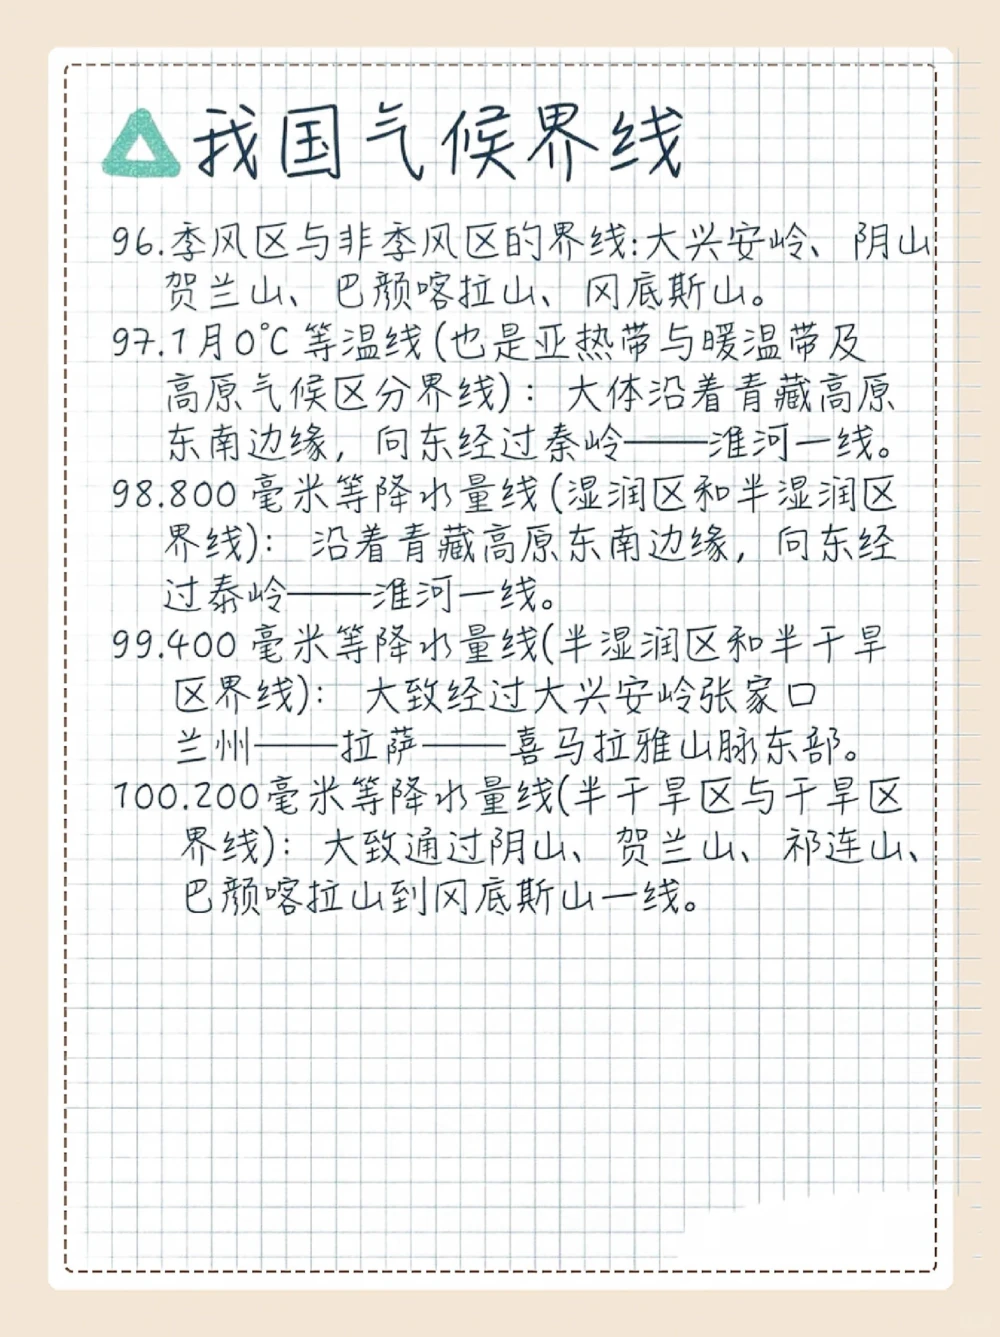 我国气候界线
96.季风区与非季风区的界线:大兴安岭、阴山
贺兰山、巴颜喀拉山、冈底斯山。
97.1月0℃等温线(也是亚热带与暖温带及
高原气候区分界线)：大体沿着青藏高原
东南边缘，向东经过秦岭——淮河一线。
98.800毫米等降水量线(湿润区和半湿润区
界线)：沿着青藏高原东南边缘，向东经
过泰岭——淮河一线。
99.400毫米等降水量线(半湿润区和半干旱
区界线)：大致经过大兴安岭张家口
兰州——拉萨——喜马拉雅山脉东部。
100.200毫米等降水量线(半干旱区与干旱区
界线)：大致通过阴山、贺兰山、祁连山、
巴颜喀拉山到冈底斯山一线。